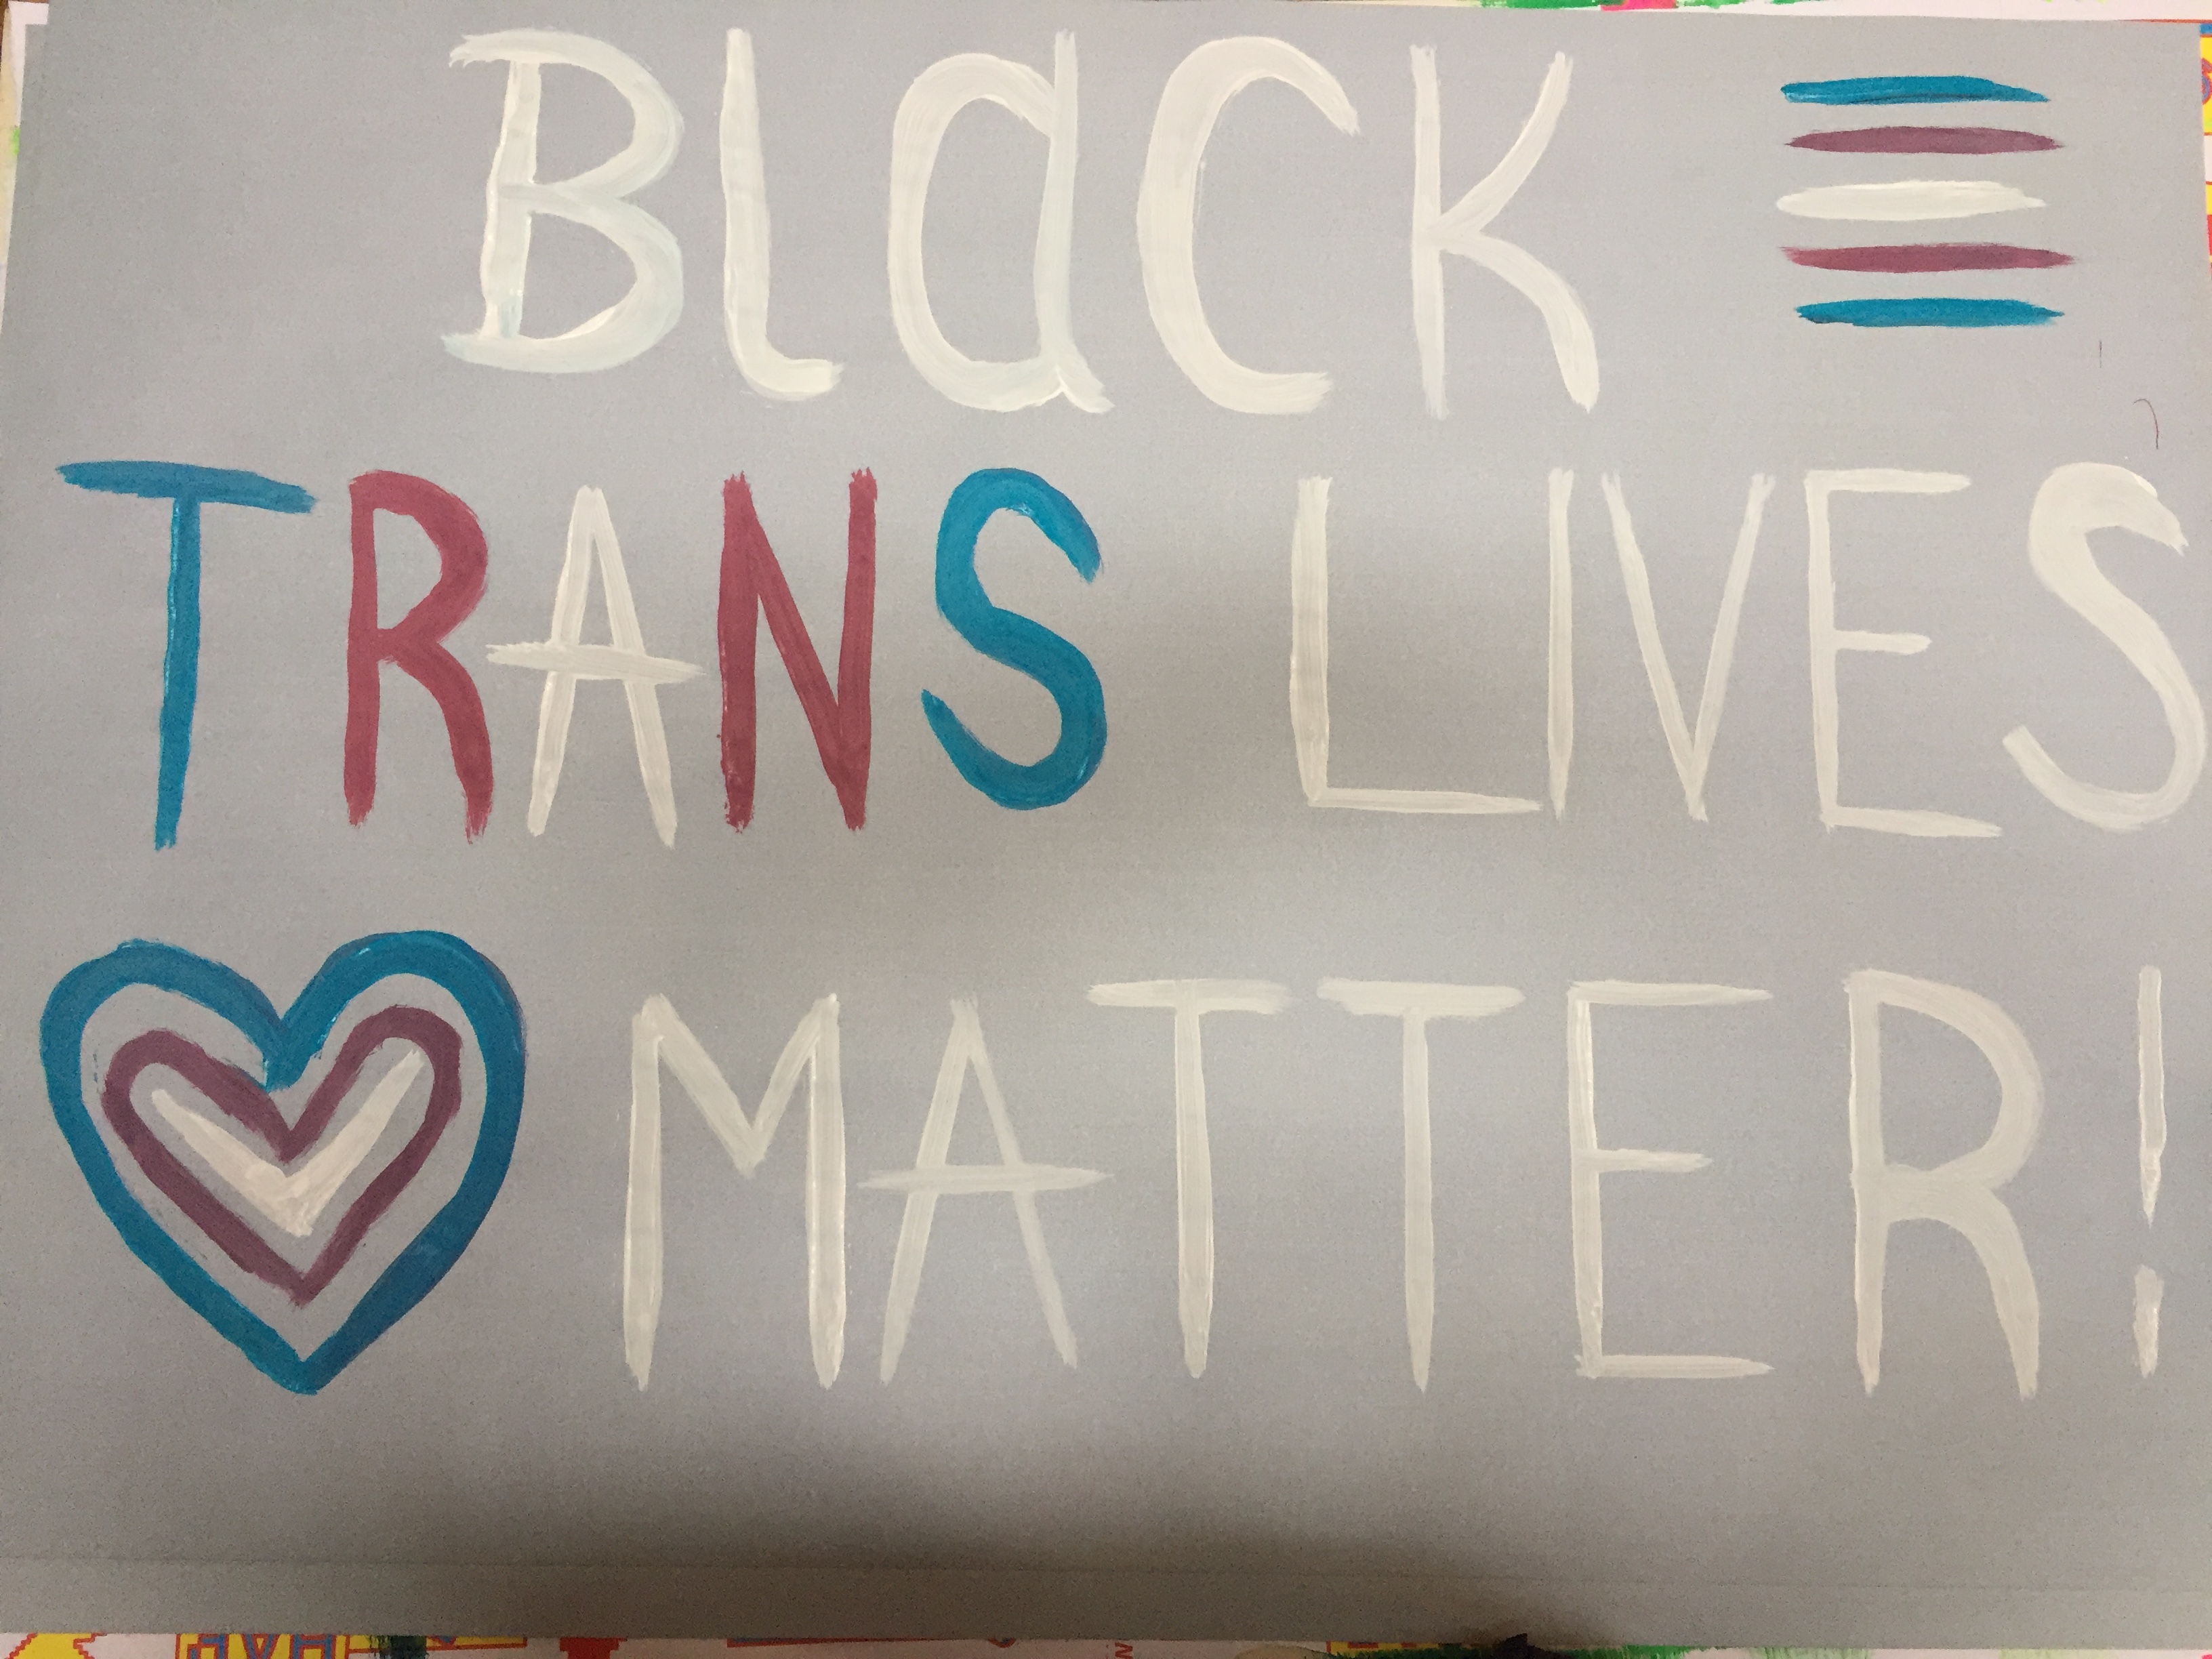 BlaCK
TRANS LIVES
MATTER!